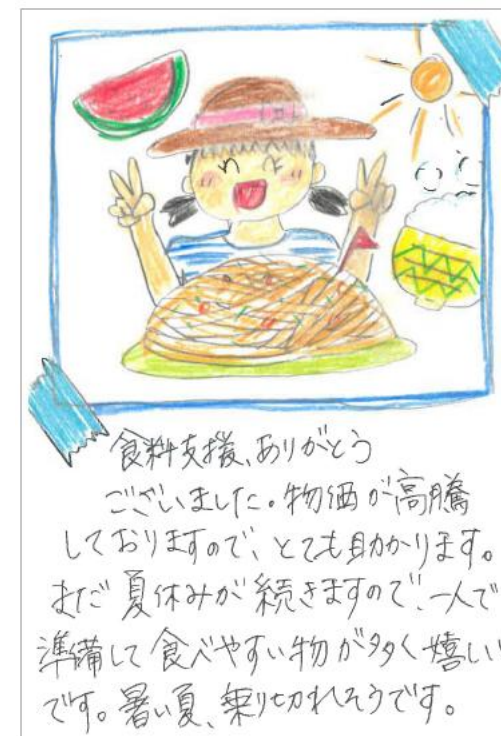 食料支援、ありがとう
ございました。物価が高騰
しておりますので、とても助かります。
まだ夏休みが続きますので、一人で
準備して食べやすい物が多く嬉しい
です。暑い夏、乗り切れそうです。